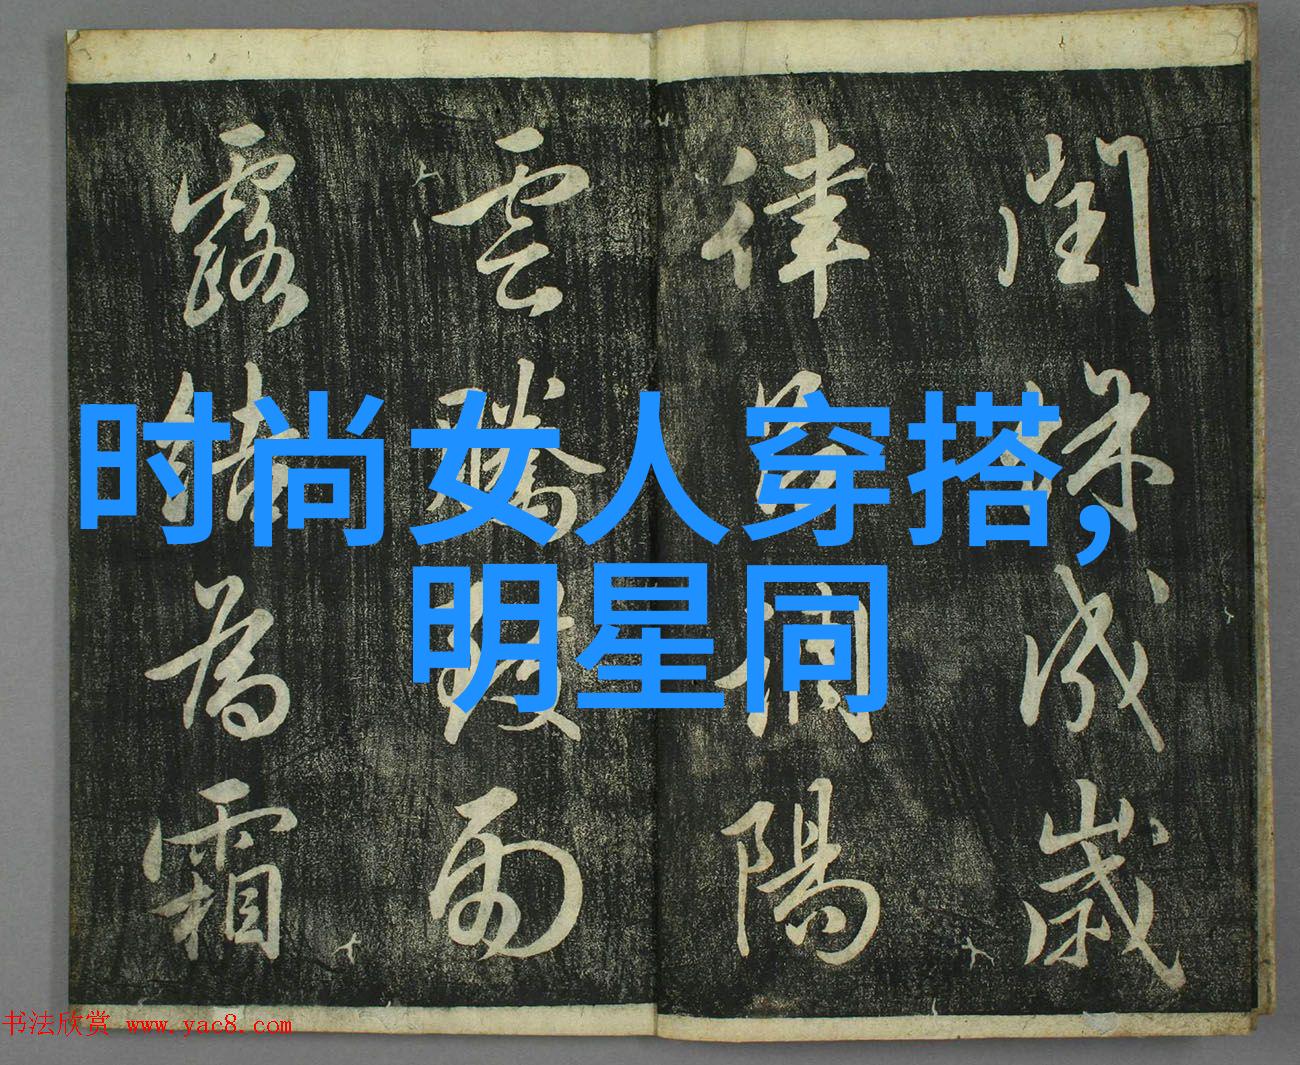 时尚女人穿搭,
明星同
閏餘成歲
律調陽
雲騰致雨
露結為霜
书法欣赏 www.yac8.com